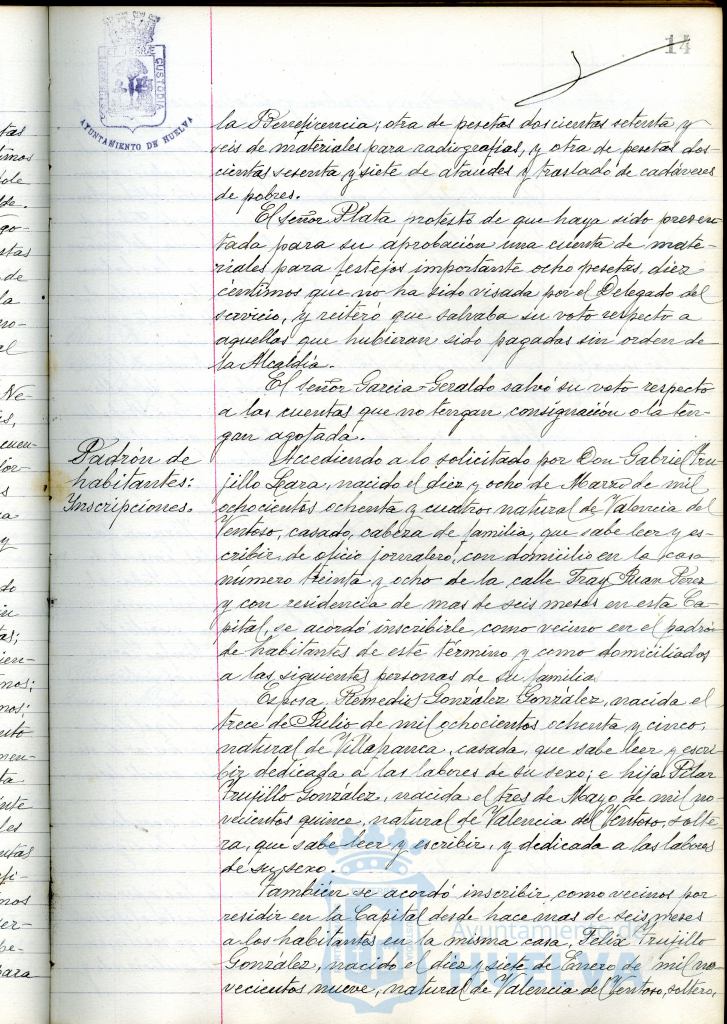 14
PORTUS MARIS ET TERRAE CUSTODIA
AYUNTAMIENTO DE HUELVA
la Beneficencia; otra de pesetas doscientas setenta y
seis de materiales para radiografias, y otra de pesetas dos-
cientas sesenta y siete de ataudes y traslado de cadáveres
de pobres.
El señor Plata protestó de que haya sido presen-
tada para su aprobación una cuenta de mate-
riales para festejos importante ocho pesetas, diez
centimos que no ha sido visada por el Delegado del
servicio, y reiteró que salvaba su voto respecto a
aquellas que hubieran sido pagadas sin orden de
la Alcaldía.
El señor Garcia-Geraldo salvó su voto respecto
a las cuentas que no tengan consignación o la ten-
gan agotada.
Padrón de
habitantes:
Inscripciones.
Accediendo a lo solicitado por Don Gabriel Tru-
jillo Lara, nacido el diez y ocho de Marzo de mil
ochocientos ochenta y cuatro, natural de Valencia del
Ventoso, casado, cabeza de familia, que sabe leer y es-
cribir, de oficio jornalero, con domicilio en la casa
número treinta y ocho de la calle Fray Juan Perez
y con residencia de mas de seis meses en esta Ca-
pital, se acordó inscribirle como vecino en el padrón
de habitantes de este término y como domiciliados
a las siguientes personas de su familia.
Esposa, Remedios González González, nacida el
trece de Julio de mil ochocientos ochenta y cinco,
natural de Villafranca, casada, que sabe leer y escri-
bir, dedicada a las labores de su sexo; e hija Pilar
Trujillo González, nacida el tres de Mayo de mil no-
vecientos quince, natural de Valencia del Ventoso, solte-
ra, que sabe leer y escribir, y dedicada a las labores
de su sexo.
También se acordó inscribir como vecinos por
residir en la Capital desde hace mas de seis meses
a los habitantes en la misma casa, Felix Trujillo
González, nacido el diez y siete de Enero de mil no-
vecientos nueve, natural de Valencia del Ventoso, soltero,
Ayuntamiento de
HUELVA